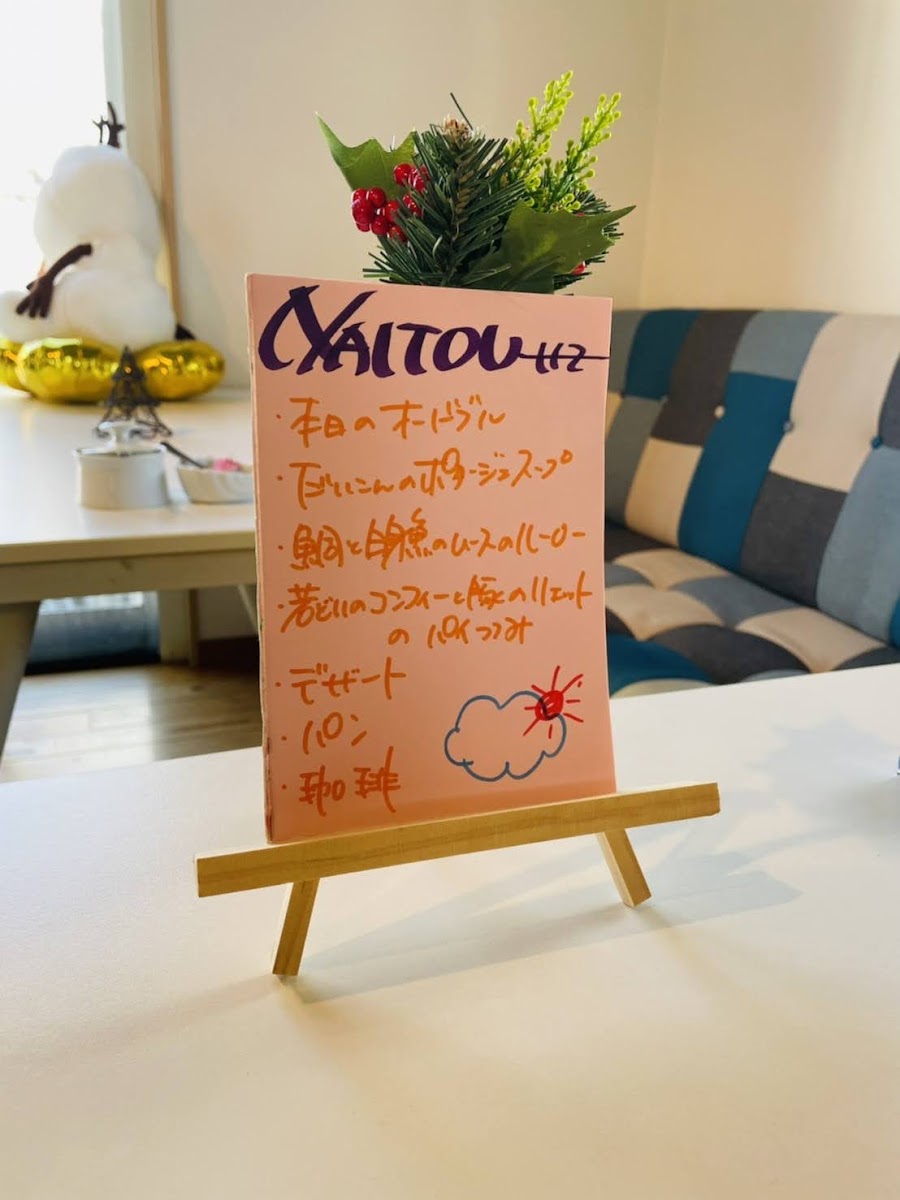 YAITOU 112
・本日のオードブル
・だいこんのポタージュスープ
・鯛と白身魚のムースのルーロー
・若どりのコンフィーと豚のリエット
のパイつつみ
・デザート
・パン
・珈琲